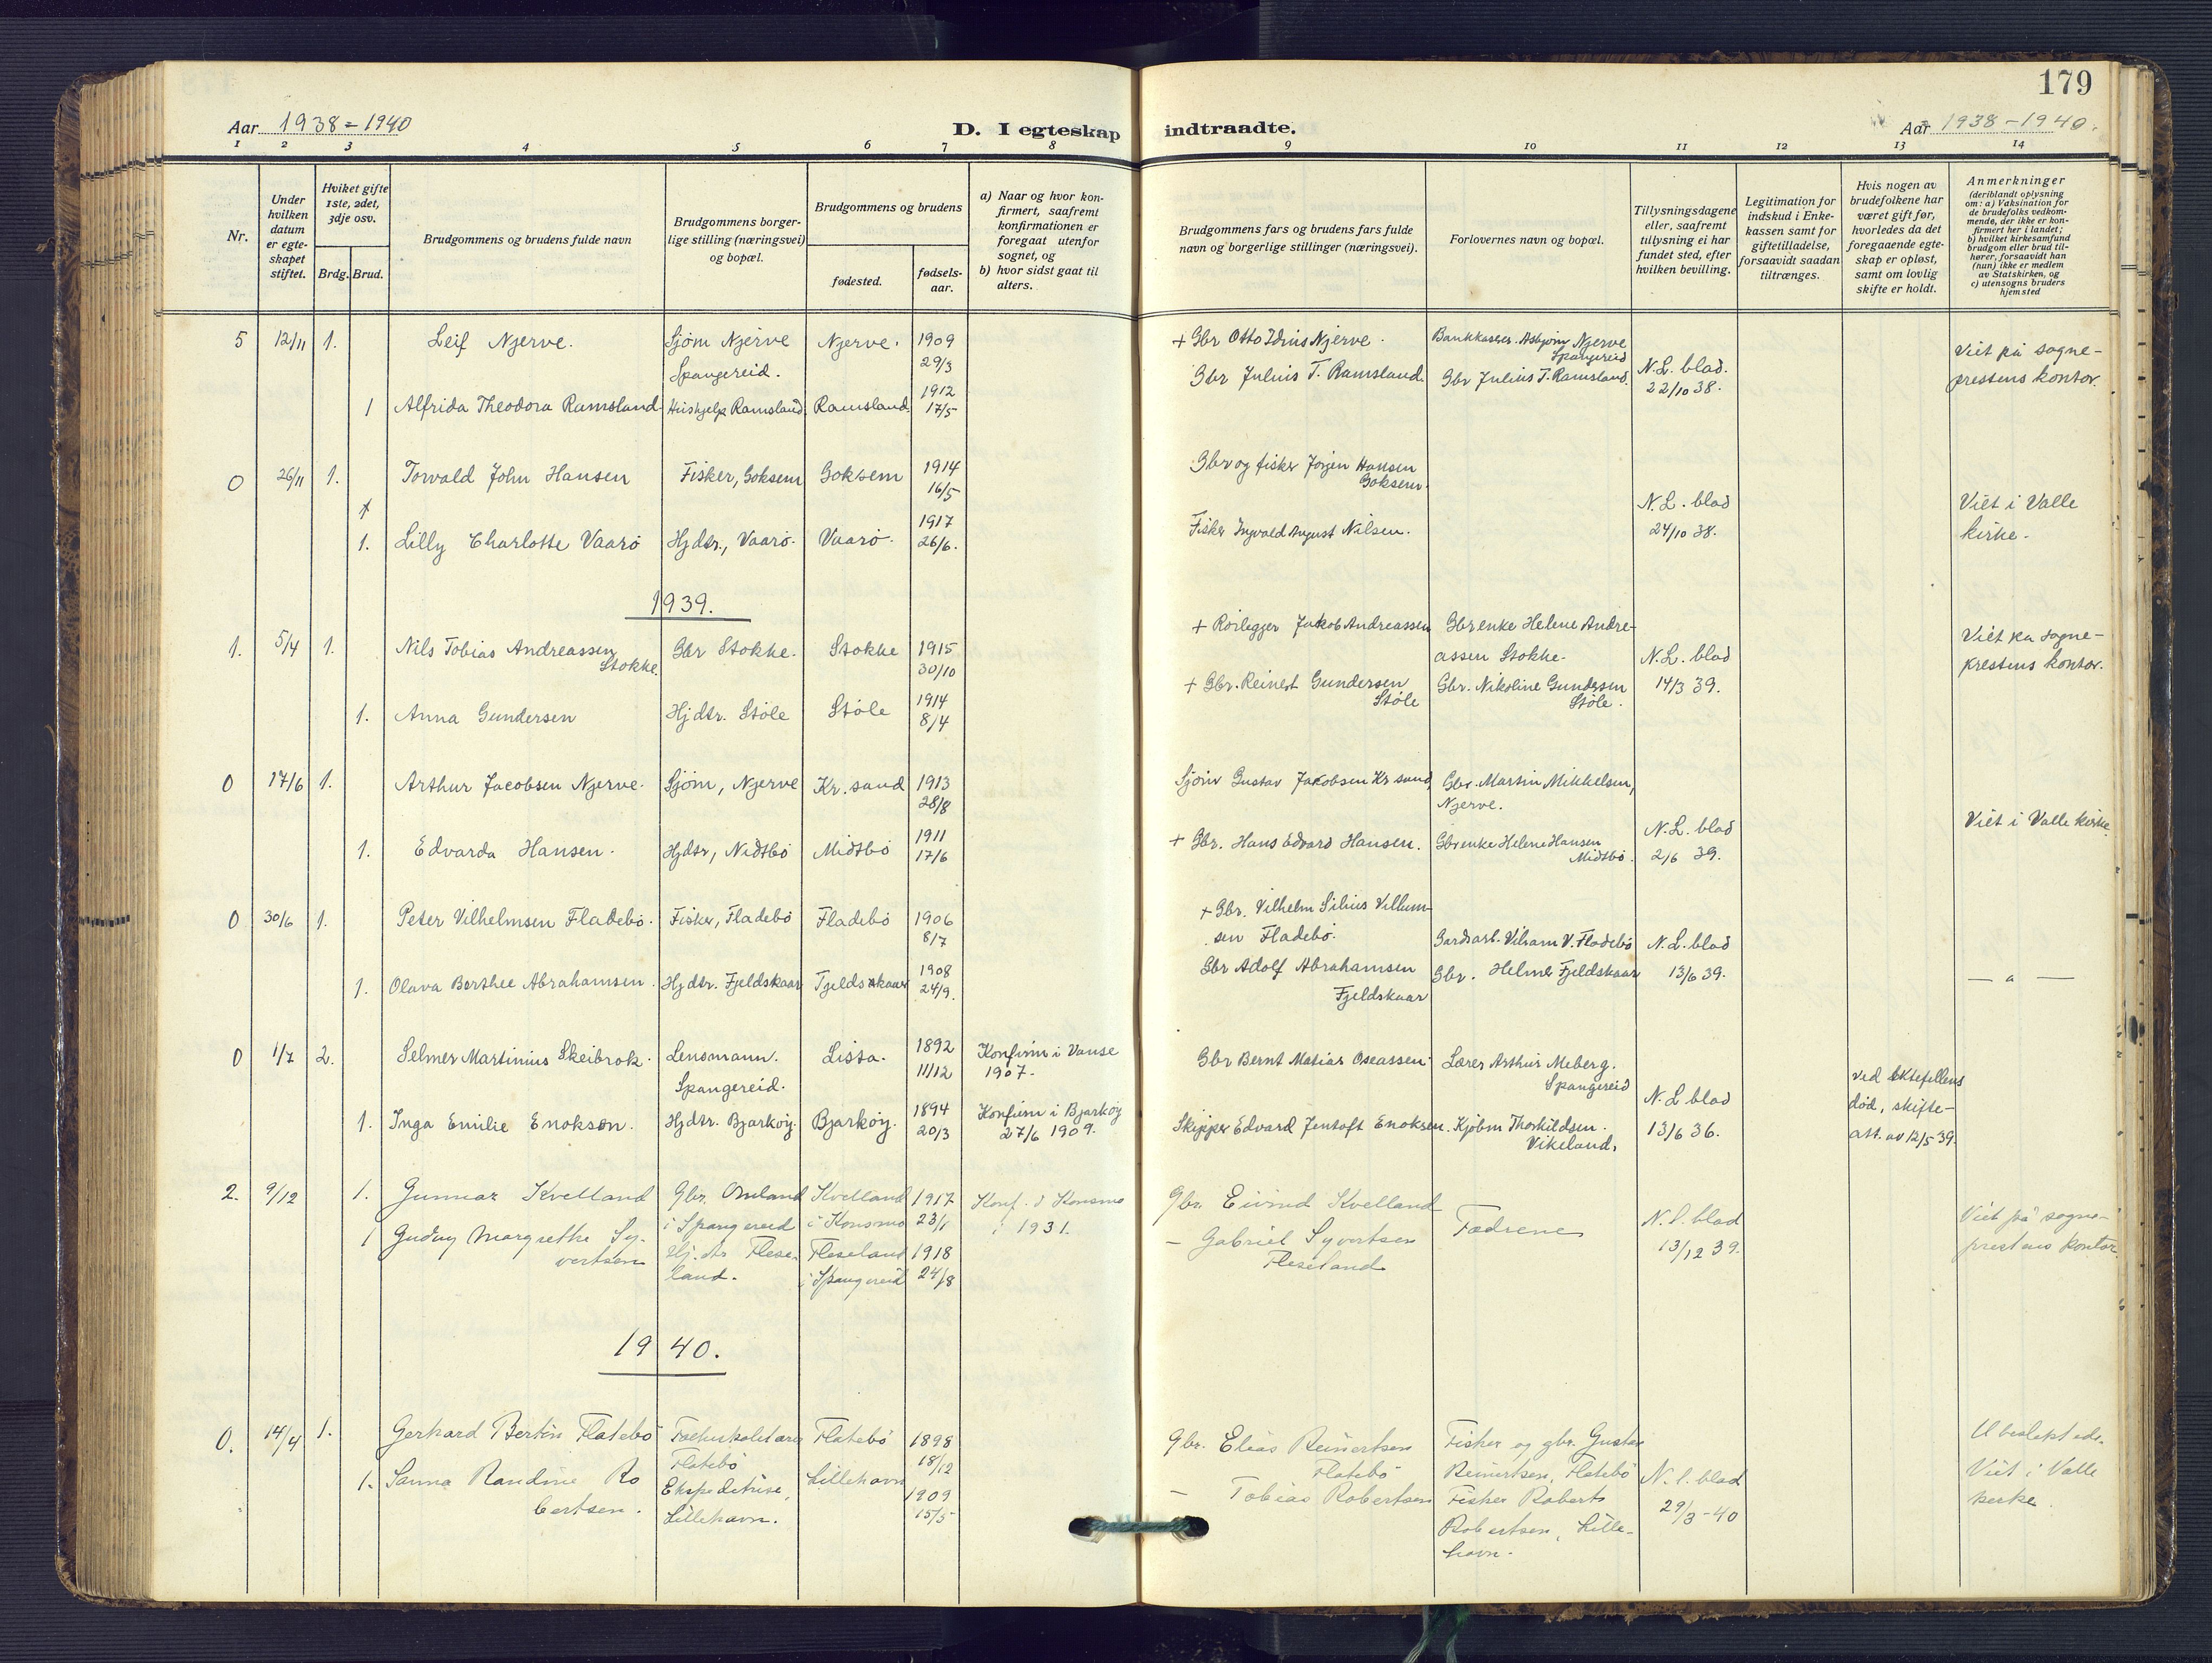 179
Aar 1938-1940
D. I egteskap indtraadte.
Aar 1938-1940.
1 2 3 4 5 6 7 8 9 10 11 12 13 14
Nr.
Under
hvilken
datum
er egte-
skapet
stiftet.
Hviket gifte
1ste, 2det,
3dje osv.
Brdg. Brud.
Brudgommens og brudens fulde navn
Brudgommens borger-
lige stilling (næringsvei)
og bopæl.
Brudgommens og brudens
fødested.
fødsels-
aar.
a) Naar og hvor kon-
firmert, saafremt
konfirmationen er
foregaat utenfor
sognet, og
b) hvor sidst gaat til
alters.
Brudgommens fars og brudens fars fulde
navn og borgerlige stillinger (næringsvei).
Forlovernes navn og bopæl.
Tillysningsdagene
eller, saafremt
tillysning ei har
fundet sted, efter
hvilken bevilling.
Legitimation for
indskud i Enke-
kassen samt for
giftetilladelse,
forsaavidt saadan
tiltrænges.
Hvis nogen av
brudefolkene har
været gift før,
hvorledes da det
foregaaende egte-
skap er opløst,
samt om lovlig
skifte er holdt.
Anmerkninger
(deriblandt oplysning
om: a) Vaksination for
de brudefolks vedkom-
mende, der ikke er kon-
firmert her i landet;
b) hvilket kirkesamfund
brudgom eller brud til-
hører, forsaavidt han
(hun) ikke er medlem
av Statskirken, og
c) utensogns bruders
hjemsted
5 12/11 1. Leif Njerve. Sjøm Njerve Njerve. 1909 + Gbr Otto Idius Njerve. Bankkasser. Asbjørn Njerve
Spangereid. 29/3 Spangereid
1 Alfrida Theodora Ramsland Hushjelp Ramsland. Ramsland. 1912 Gbr Julius T. Ramsland. Gbr Julius T. Ramsland. N.L. blad.
17/5 22/10 38.
Viet på sogne-
prestens kontor.
0 26/11 1. Torvald John Hansen Fisker, Goksem Goksem 1914 Gbr og fisker Jørgen Hansen
16/5 Goksem.
1. Lilly Charlotte Vaarø Hjdtr., Vaarø. Vaarø. 1917 Fisker Ingvald August Nilsen. N.L. blad
26/6. 24/10 38.
Viet i Valle
kirke.
1939.
1. 5/4 1. Nils Tobias Andreassen Gbr Stokke. Stokke 1915 + Rørlegger Jakob Andreassen Gbrenke Helene Andre-
Stokke. 30/10 assen Stokke. N.L. blad
1. Anna Gundersen Hjdtr. Støle Støle 1914 + Gbr. Reinert Gundersen Gbr. Nikoline Gundersen 14/3 39.
8/4 Støle Støle.
Viet på sogne-
prestens kontor.
0 17/6 1. Arthur Jacobsen Njerve. Sjøm, Njerve Kr. sand 1913 Sjøm Gustav Jakobsen Kr sand, Gbr. Martin Mikkelsen,
28/8 Njerve.
1. Edvarda Hansen. Hjdtr, Nidtbø Midtbø 1911 + Gbr. Hans Edvard Hansen. Gbrenke Helene Hansen N.L. blad
17/6 Midtbø. 2/6 39.
Viet i Valle kirke.
0 30/6 1. Peter Vilhelmsen Fladebø. Fisker, Fladebø Fladebø 1906 + Gbr. Vilhelm Silius Villum-
8/7 sen Fladebø. Gardsarb. Vilsam V. Fladebø N.L. blad
1. Olava Berthee Abrahamsen. Hjdtr. Fjeldskaar Fjeldskaar 1908 Gbr Adolf Abrahamsen Gbr. Helmer Fjeldskaar 13/6 39.
24/9. Fjeldskaar
— a —
0 1/7 2. Selmer Martinius Skeibrok. Lensmann. Lista. 1892 Konfirm i Vanse Gbr Bernt Matias Oseassen. Lærer Arthur Meberg.
Spangereid. 11/12 1907. Spangereid
1. Inga Emilie Enoksen. Hjdtr. Bjarkøy. Bjarkøy. 1894 Konfirm i Bjarkøy Skipper Edvard Jentoft Enoksen. Kjøbm Thorkildsen. N.L blad
20/3 27/6 1909. Vikeland. 13/6 36.
ved ektefellens
død, skifte-
att. av 12/5 39.
2. 9/12 1. Gunnar Kvelland Gbr. Omland Kvelland 1917 Konf. i Konsmo Gbr. Eivind Kvelland
i Spangereid i Konsmo 23/1 i 1931.
1 Gudny Margrethe Sy- Hj. dtr Flese- Fleseland 1918 — Gabriel Syvertsen Fædrene N.l. blad
vertsen land. i Spangereid 24/8 Fleseland 13/12 39.
Viet på sogne-
prestens kontor.
1940.
0. 14/4 1. Gerhard Bertin Flatebø Flatebø Flatebø 1898 Gbr. Elias Reinertsen Fisker og gbr. Gustav
18/12 Flatebø Reinertsen, Flatebø
1. Sanna Randine Ro Ekspeditrise, Lillehavn 1909 — Tobias Robertsen Fisker Roberts N. l. blad
bertsen. Lillehavn. 15/5 Robertsen, Lille- 29/3-40
havn.
Viet i Valle
kirke.